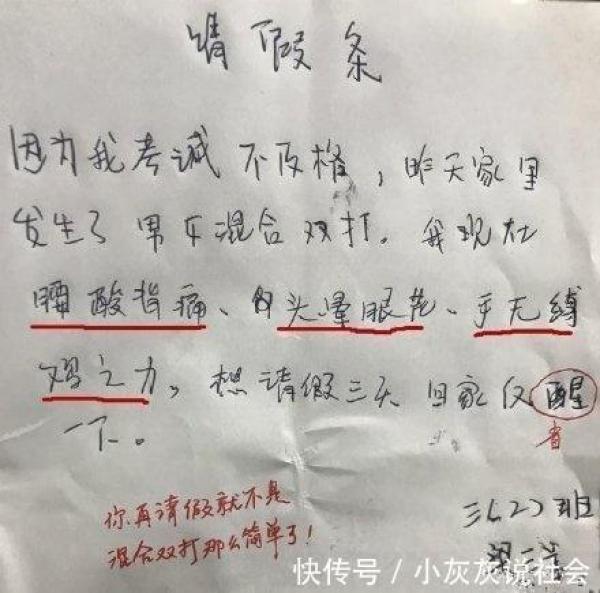 请假条
因为我考诚不及格，昨天家里
发生了男女混合双打。我现在
腰酸背痛、头晕眼花、手无缚
鸡之力，想请假三天回家反醒
省
一下。
三(2)班
你再请假就不是
混合双打那么简单了！
快传号/小灰灰说社会